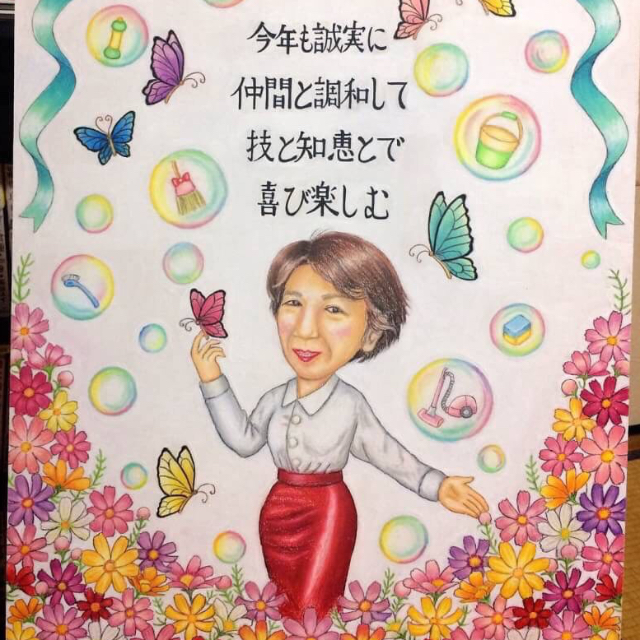 今年も誠実に
仲間と調和して
技と知恵とで
喜び楽しむ